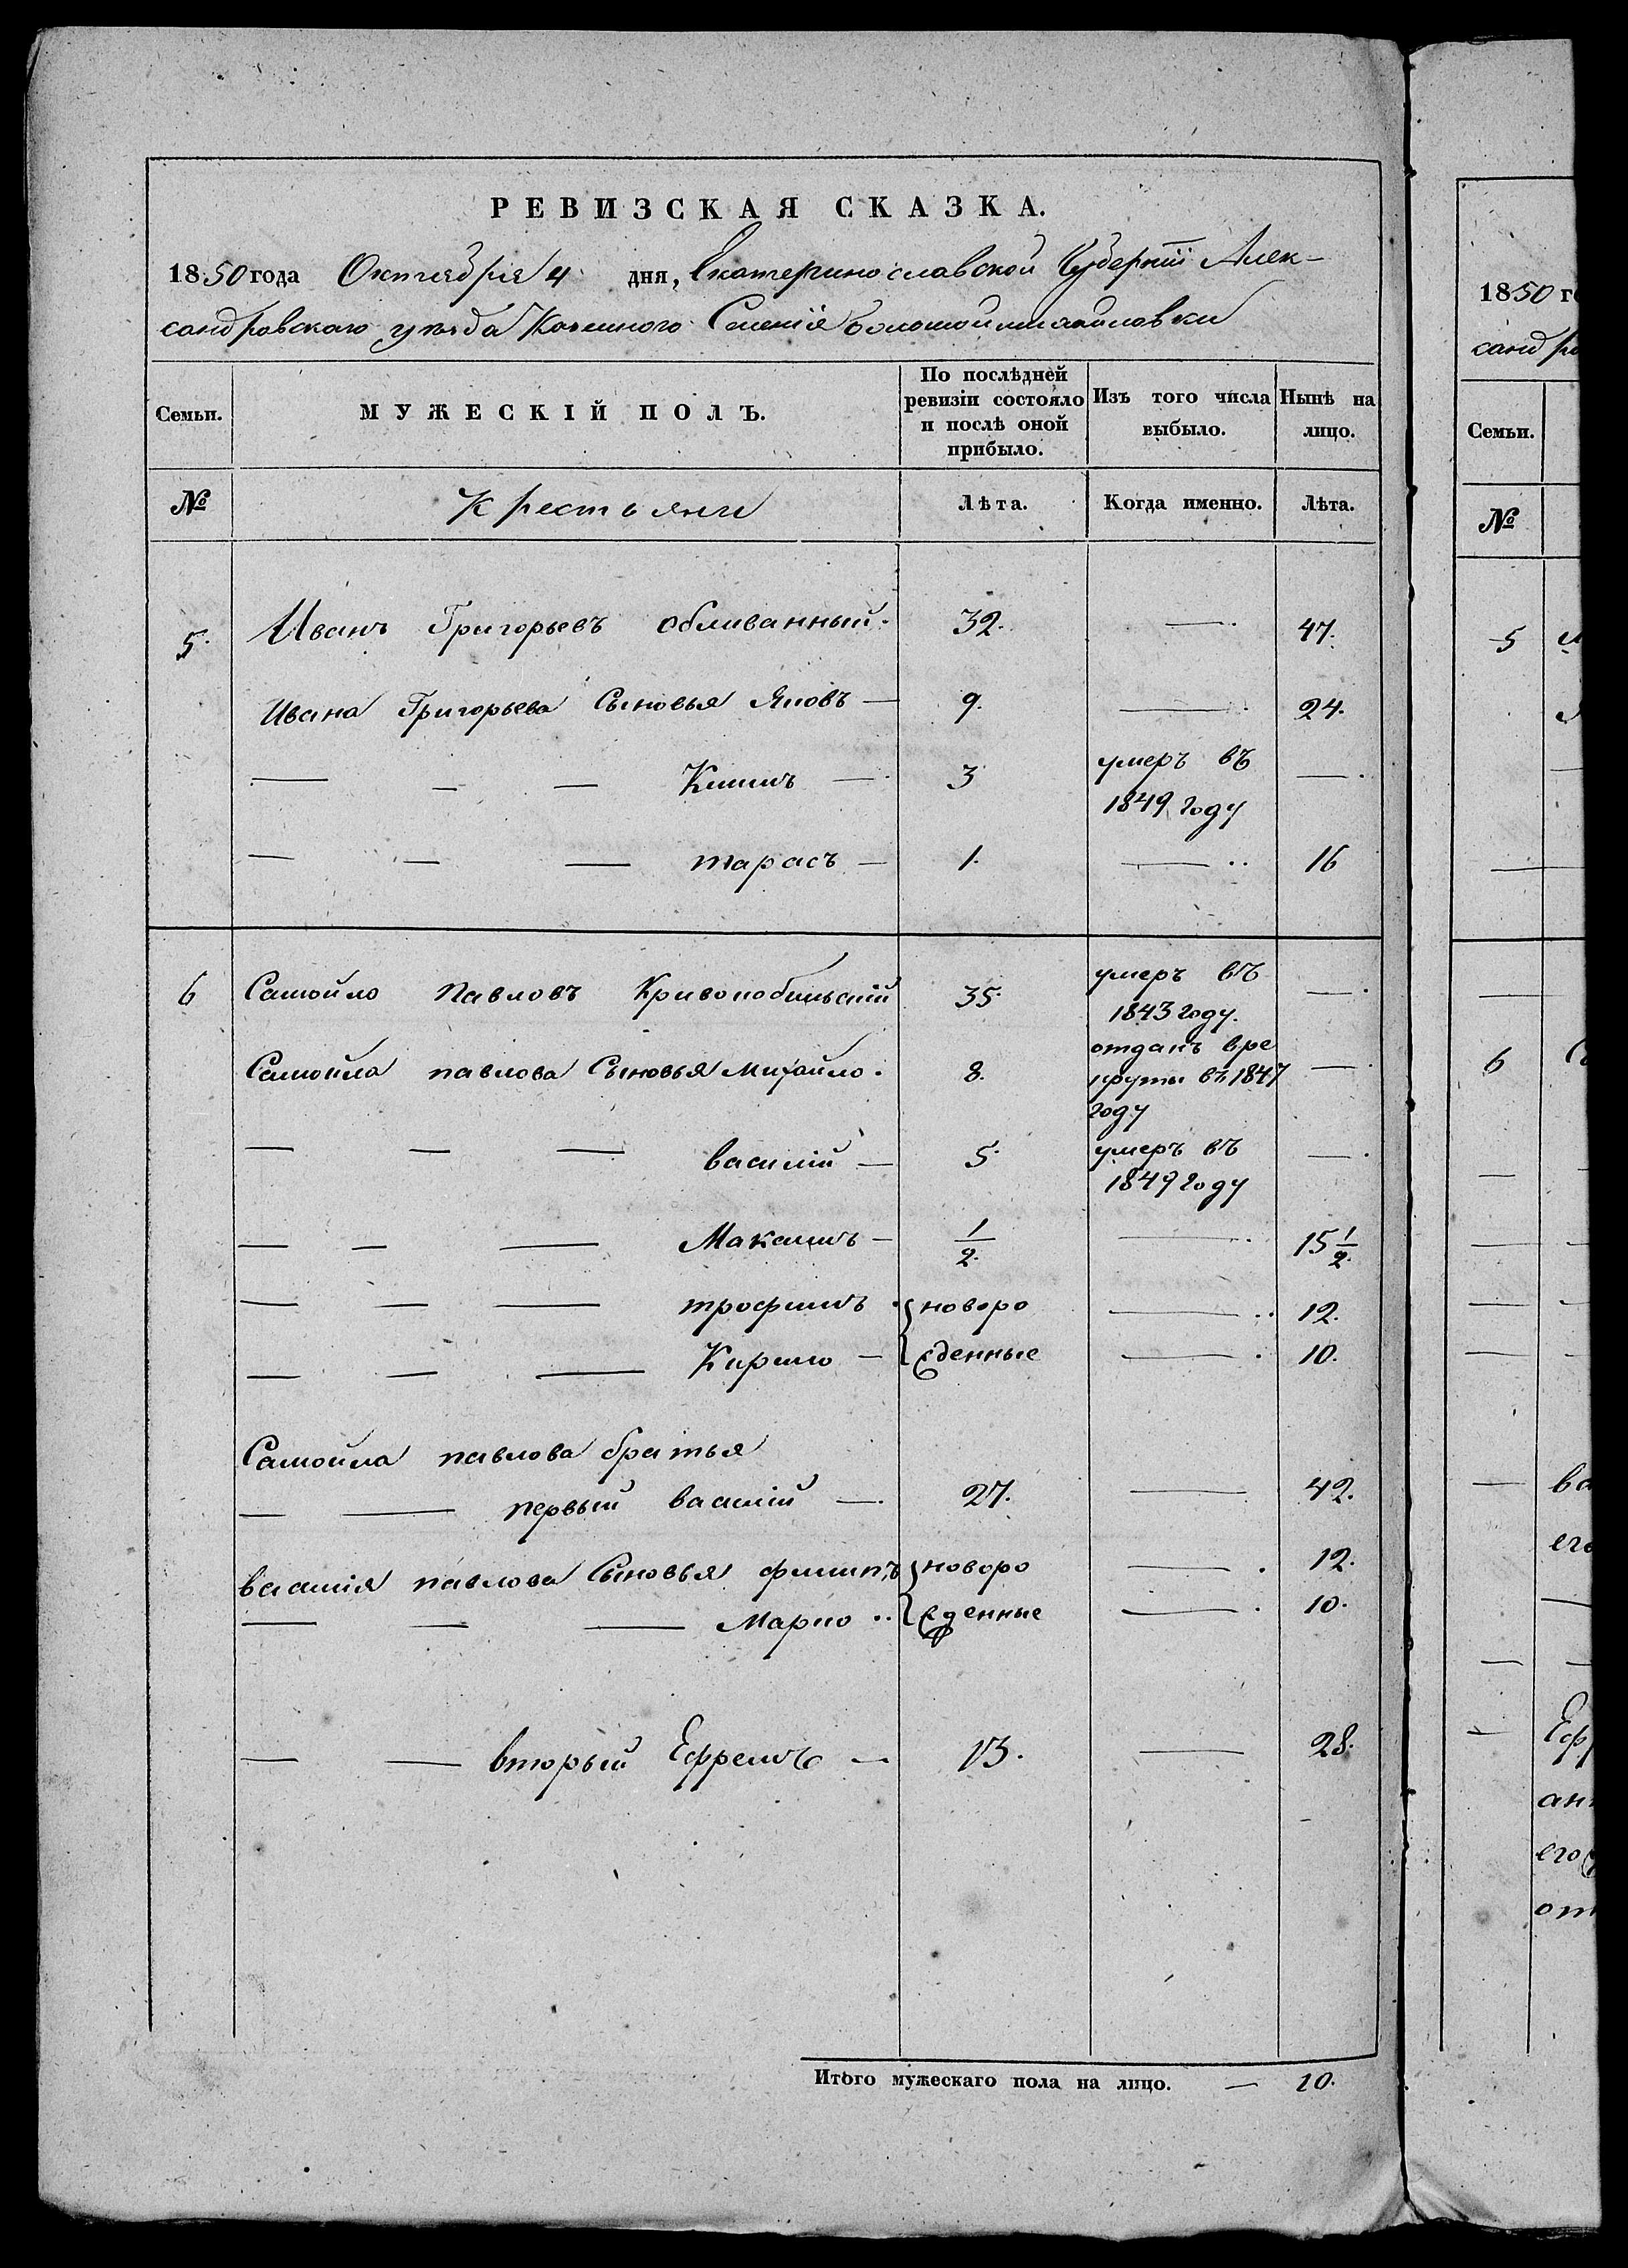 РЕВИЗСКАЯ СКАЗКА.
1850 года Октября 4 дня, Екатеринославской Губерніи Алек-
сандровскаго уѣзда Казенного Селенія
Семьи.
МУЖЕСКІЙ ПОЛЪ.
По послѣдней ревизіи состояло и послѣ оной прибыло.
Изъ того числа выбыло.
Нынѣ на лицо.
№ Крестьяни Лѣта. Когда именно. Лѣта.
5. Иванъ Григорьевъ Обливанный. 32. — 47.
Ивана Григорьева Сыновья Яковъ — 9. — 24.
— — — Климъ — 3 умеръ въ —
1849 году
— — — тарасъ — 1. — 16
6 Самойло Павловъ 35. умеръ въ —
1843 году.
Самойла павлова Сыновья Михайло. 8. отданъ вре —
круты въ 1847
году
— — — василій — 5. умеръ въ —
1849 году
— — — Максимъ — 1/2. — 15 1/2.
— — — трофимъ новоро — 12.
— — — Кирило — жденные — 10.
Самойла павлова братья
— — первый василій — 27. — 42.
василія павлова Сыновья филипъ новоро — 12.
— — — Марко жденные — 10.
— — вторый Ефремъ — 13. — 28.
Итого мужескаго пола на лицо. — 10.
1850 го
санд ро
Семьи.
№
5
6
ва
его
Еф
ан
его
от